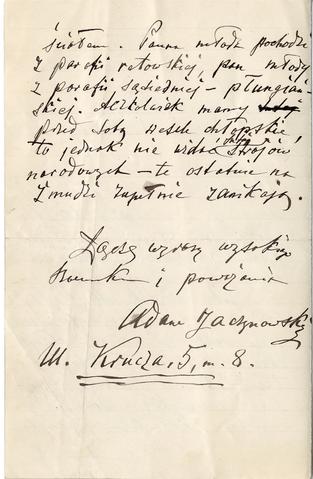 światem. Panna młoda pochodzi
z parafii retowskiej, pan młody
z parafii sąsiedniej – płungiań-
skiej. Aczkolwiek mamy
przed sobą wesele chłopskie,
to jednak nie widać strojów
narodowych – te ostatnie na
Żmudzi zupełnie zanikają.
Łączę wyrazy wysokiego
szacunku i poważania
Adam
Ul. Krucza, 5, m. 8.